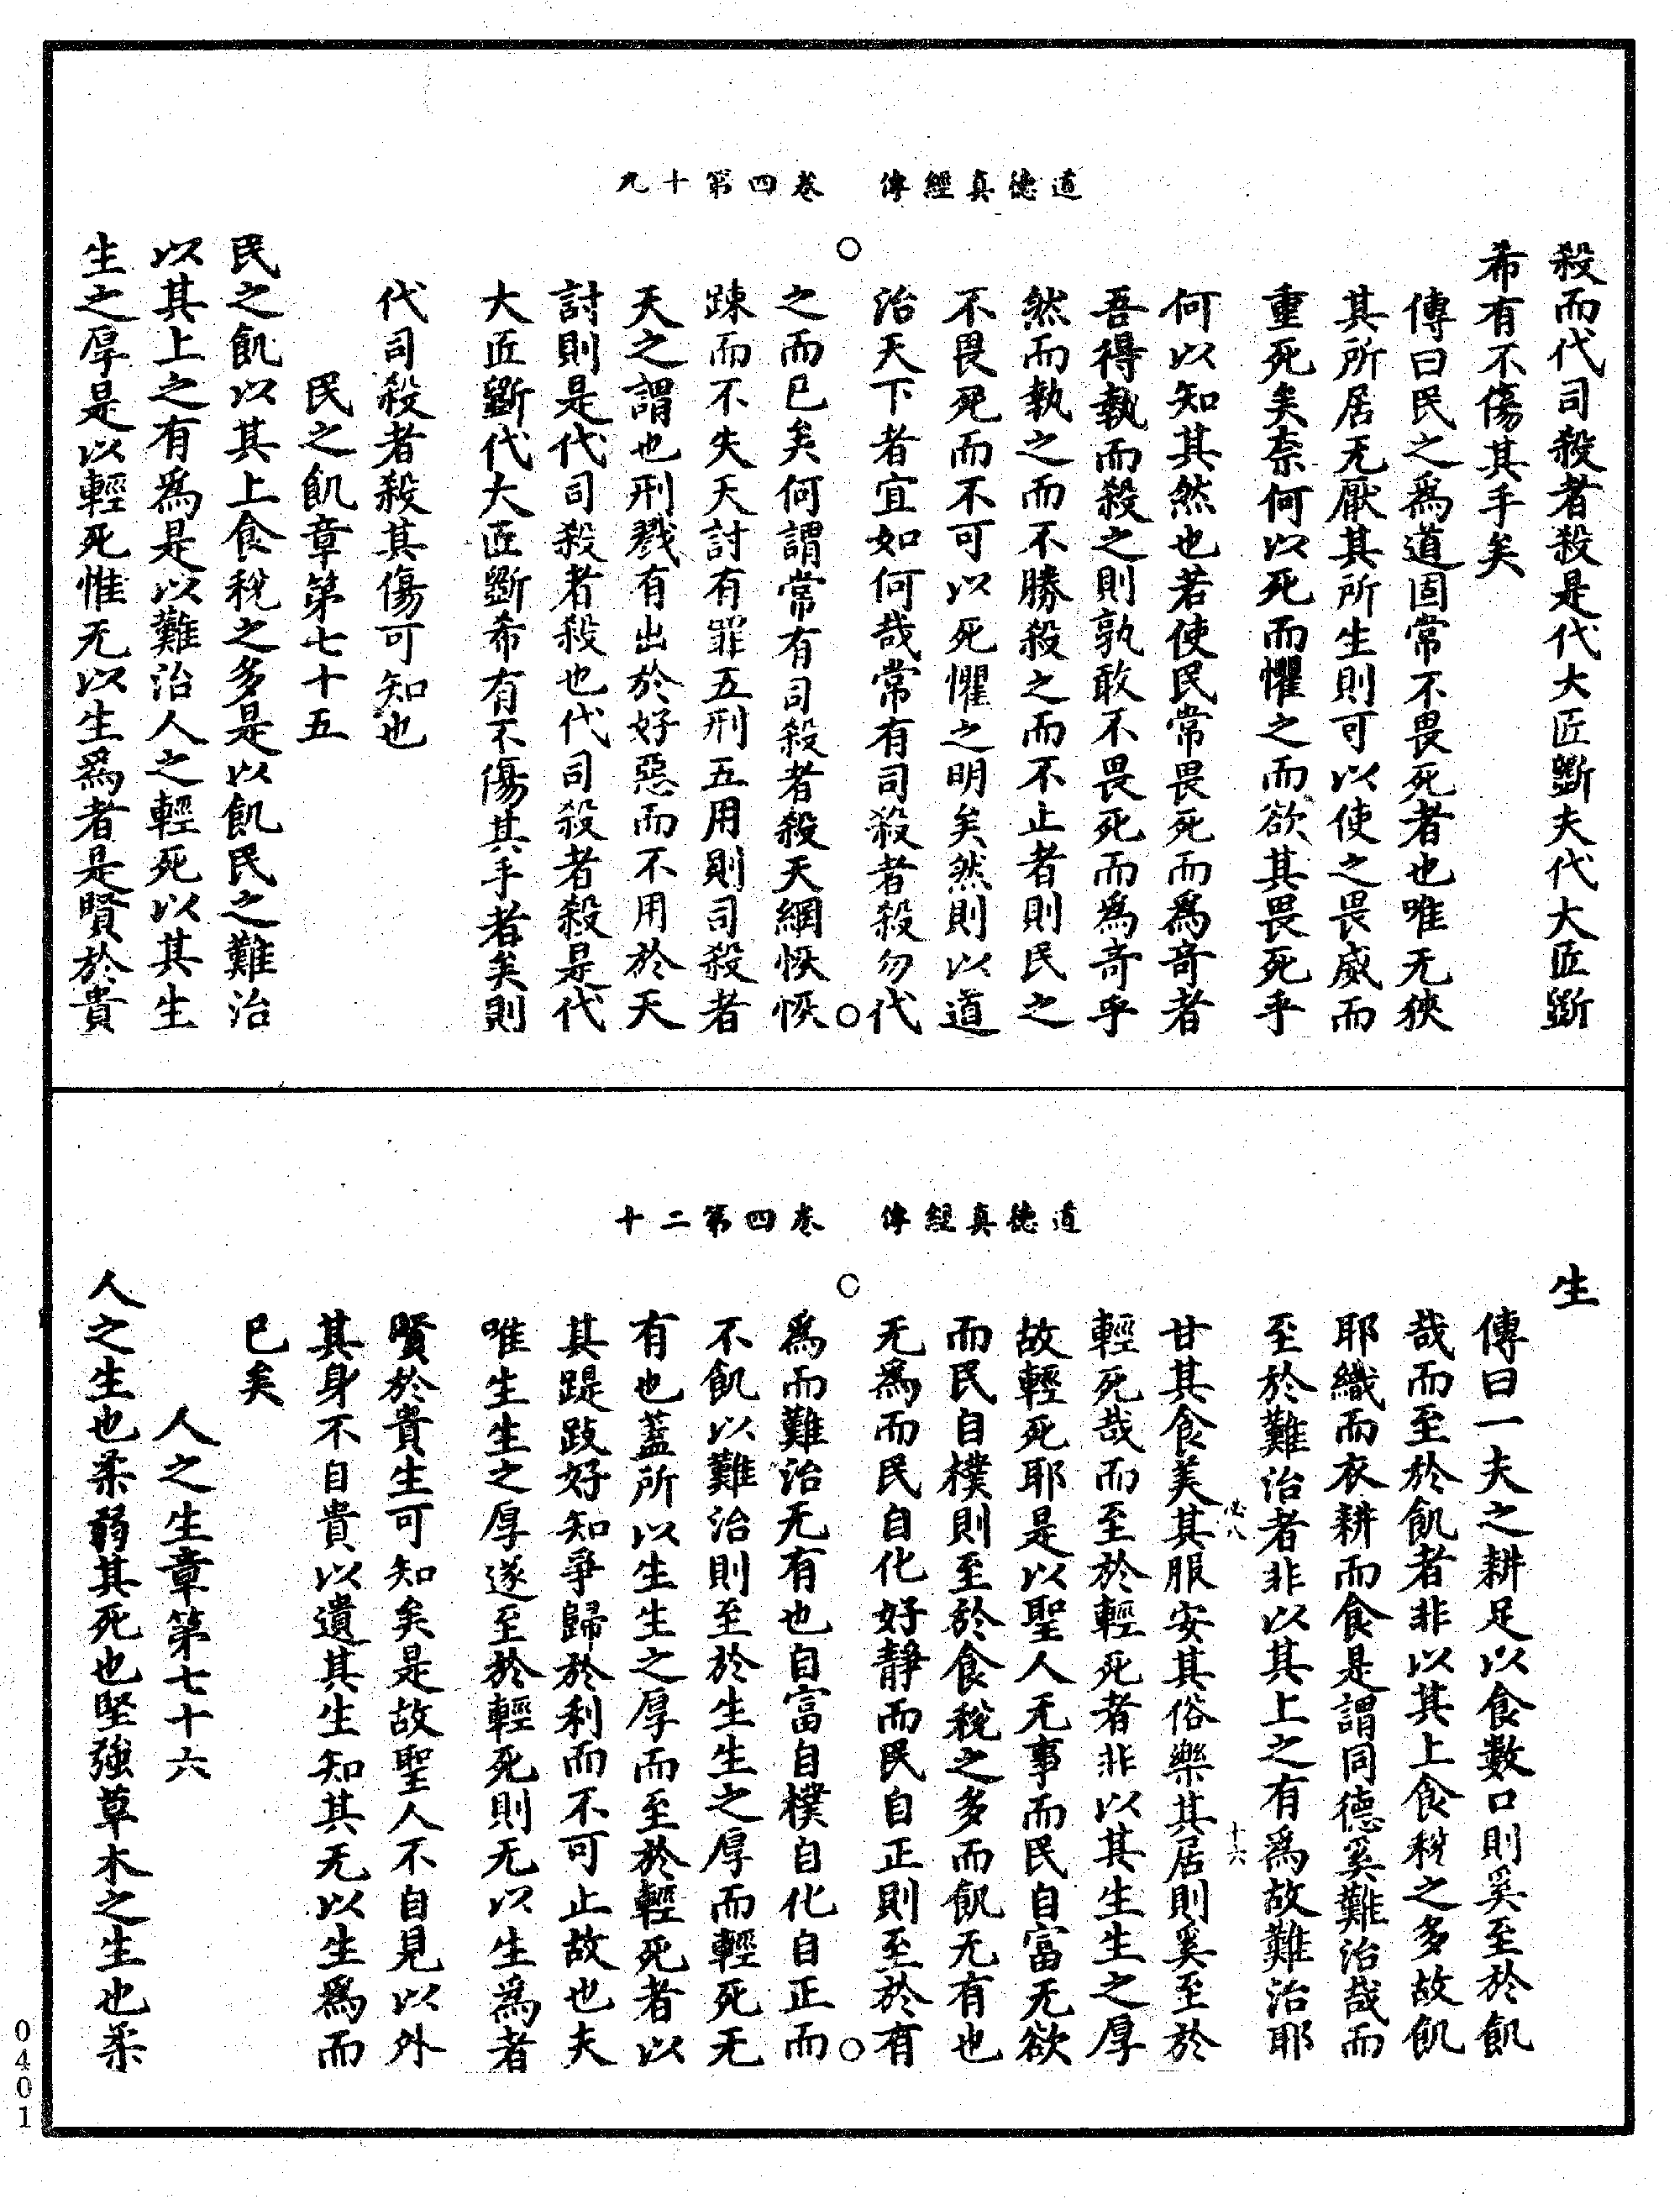 道德真經傳　卷四第十九
殺而代司殺者殺是代大匠斲夫代大匠斲
希有不傷其手矣
傳曰民之爲道固常不畏死者也唯无狹
其所居无厭其所生則可以使之畏威而
重死矣柰何以死而懼之而欲其畏死乎
何以知其然也若使民常畏死而爲竒者
吾得執而殺之則孰敢不畏死而爲竒乎
然而執之而不勝殺之而不止者則民之
不畏死而不可以死懼之明矣然則以道
治天下者宜如何哉常有司殺者殺勿代
之而已矣何謂常有司殺者殺天網恢恢
踈而不失天討有罪五刑五用則司殺者
天之謂也刑戮有出於好惡而不用於天
討則是代司殺者殺也代司殺者殺是代
大匠斲代大匠斲希有不傷其手者矣則
代司殺者殺其傷可知也
民之飢章第七十五
民之飢以其上食稅之多是以飢民之難治
以其上之有爲是以難治人之輕死以其生
生之厚是以輕死惟无以生爲者是賢於貴
道德真經傳　卷四第二十
生
傳曰一夫之耕足以食數口則奚至於飢
哉而至於飢者非以其上食稅之多故飢
耶織而衣耕而食是謂同德奚難治哉而
至於難治者非以其上之有爲故難治耶
必八　十六
甘其食美其服安其俗樂其居則奚至於
輕死哉而至於輕死者非以其生生之厚
故輕死耶是以聖人无事而民自富无欲
而民自樸則至於食稅之多而飢无有也
无爲而民自化好靜而民自正則至於有
爲而難治无有也自富自樸自化自正而
不飢以難治則至於生生之厚而輕死无
有也蓋所以生生之厚而至於輕死者以
其踶跂好知爭歸於利而不可止故也夫
唯生生之厚遂至於輕死則无以生爲者
賢於貴生可知矣是故聖人不自見以外
其身不自貴以遺其生知其无以生爲而
已矣
人之生章第七十六
人之生也柔弱其死也堅強草木之生也柔
0401